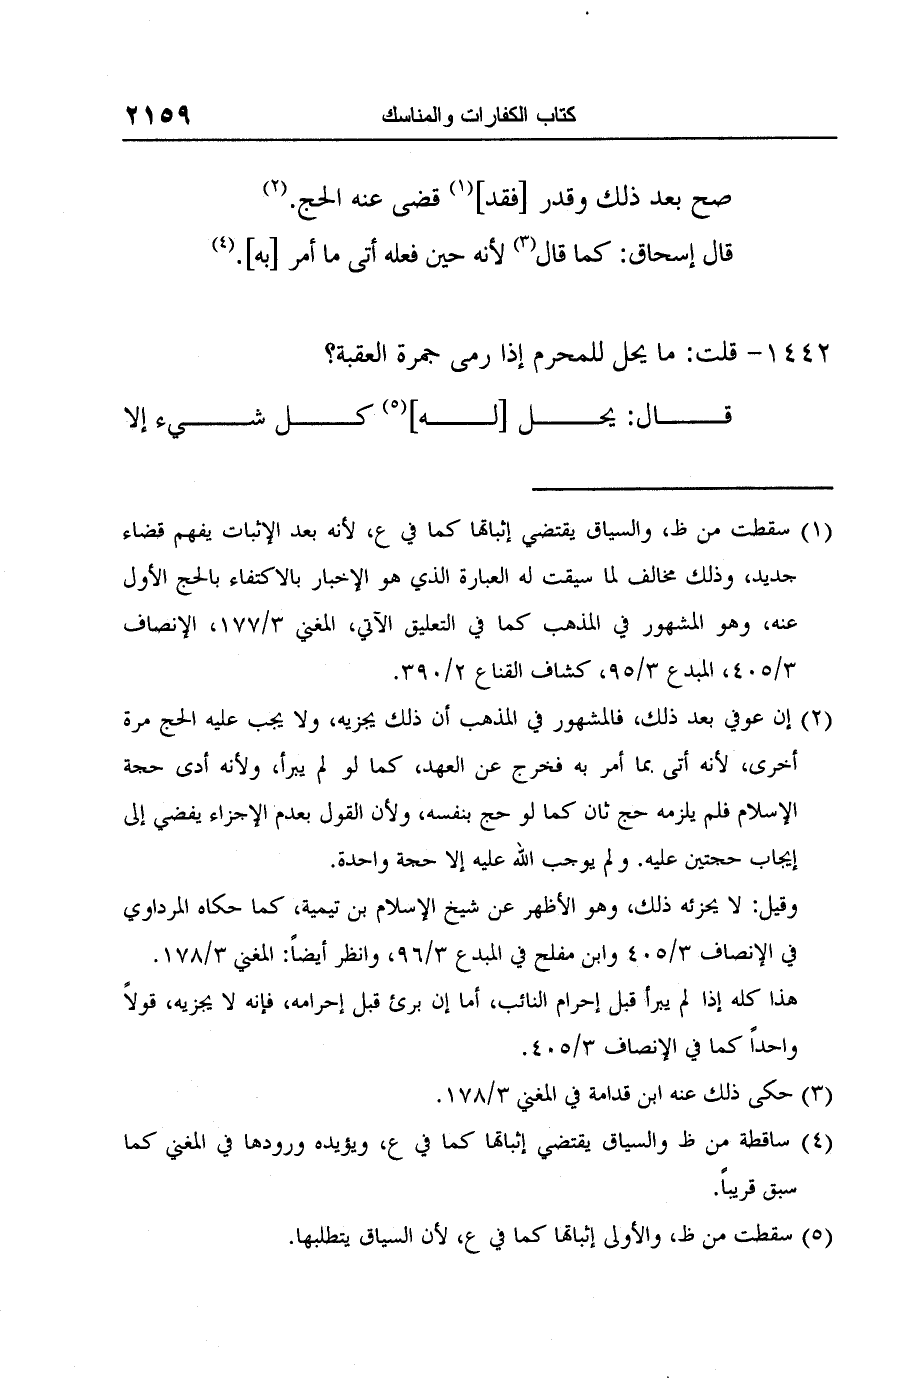 كتاب الكفارات والمناسك ٢١٥٩
صح بعد ذلك وقدر [فقد](١) قضى عنه الحج.(٢)
قال إسحاق: كما قال(٣) لأنه حين فعله أتى ما أمر [به].(٤)
١٤٤٢- قلت: ما يحل للمحرم إذا رمى جمرة العقبة؟
قـــــال: يحـــــل [لـــــه](٥) كـــــل شـــــيء إلا
(١) سقطت من ظ، والسياق يقتضي إثباتها كما في ع، لأنه بعد الإثبات يفهم قضاء
جديد، وذلك مخالف لما سيقت له العبارة الذي هو الإخبار بالاكتفاء بالحج الأول
عنه، وهو المشهور في المذهب كما في التعليق الآتي، المغني ١٧٧/٣، الإنصاف
٤٠٥/٣، المبدع ٩٥/٣، كشاف القناع ٣٩٠/٢.
(٢) إن عوفي بعد ذلك، فالمشهور في المذهب أن ذلك يجزيه، ولا يجب عليه الحج مرة
أخرى، لأنه أتى بما أمر به فخرج عن العهد، كما لو لم يبرأ، ولأنه أدى حجة
الإسلام فلم يلزمه حج ثان كما لو حج بنفسه، ولأن القول بعدم الإجزاء يفضي إلى
إيجاب حجتين عليه. ولم يوجب الله عليه إلا حجة واحدة.
وقيل: لا يجزئه ذلك، وهو الأظهر عن شيخ الإسلام بن تيمية، كما حكاه المرداوي
في الإنصاف ٤٠٥/٣ وابن مفلح في المبدع ٩٦/٣، وانظر أيضاً: المغني ١٧٨/٣.
هذا كله إذا لم يبرأ قبل إحرام النائب، أما إن برئ قبل إحرامه، فإنه لا يجزيه، قولاً
واحداً كما في الإنصاف ٤٠٥/٣.
(٣) حكى ذلك عنه ابن قدامة في المغني ١٧٨/٣.
(٤) ساقطة من ظ والسياق يقتضي إثباتها كما في ع، ويؤيده ورودها في المغني كما
سبق قريباً.
(٥) سقطت من ظ، والأولى إثباتها كما في ع، لأن السياق يتطلبها.